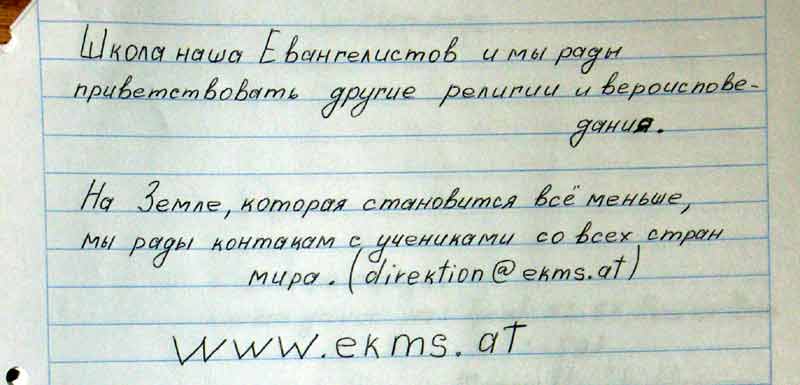 Школа наша Евангелистов и мы рады
приветствовать другие религии и вероиспове-
дания.
На Земле, которая становится всё меньше,
мы рады контакам с учениками со всех стран
мира. (direktion@ekms.at)
www.ekms.at